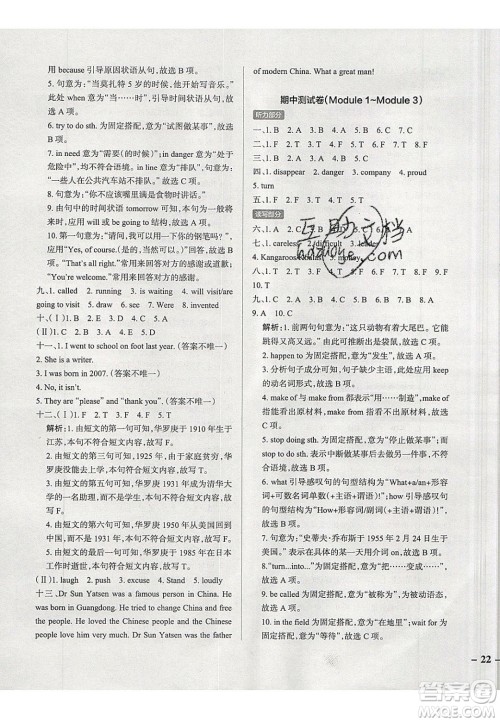 用 because 引导原因状语从句，故选 B 项。
5. 句意为：“当他伤心的时候，他开始写音乐。”
此处 when 引导时间状语从句，故选 B
项。
6. try to do sth. 为固定搭配，意为“试图做某
事”，故选 B 项。
7. in need 意为“有需要的”；in danger 意为“处于
危险中”；in line 意为“排队”。句意为：
“一些人在公共汽车站不排队。”故选 C 项。
8. 句意为：“你不应该嘴里满是食物时说话。”
故选 A 项。
9. 由句中的时间状语 tomorrow 可知，句子时
态应用 will do 结构，故选 B 项。
10. 第一句意为：“请问我可以用一下你的钢笔吗？”
应用“Yes, of course.（当然。）”回答，故选 A
项。“That's all right.”常用来回答对方的道歉；
“You're welcome.”常用来回答对方的感谢或道歉。
九、1. called 2. running 3. is waiting 4. will visit/are
going to visit 5. draw 6. see 7. were 8. invented
十、（Ⅰ）1. A 2. B 3. C
（Ⅱ）1. F 2. F 3. T
十一、1. I went to school on foot last year.（答案不唯一）
2. She is a writer.
3. I was born in 2007.（答案不唯一）
4. No, it isn't.
5. They are "please" and "thank you".（答案不唯一）
十二、（Ⅰ）1. F 2. F 3. F 4. F 5. T
解析：1. 由短文的第一句可知，华罗庚于 1910 年出生于
江苏，本句不符合短文内容，故写 F。
2. 由短文的第二句可知，华罗庚于 1925 年初
中毕业，本句不符合短文内容，故写 F。
3. 由短文的第四句可知，华罗庚于 1931 年开始在
清华大学学习，本句不符合短文内容，故写
F。
4. 由短文的第六句可知，华罗庚 1950 年从美国回到
中国，本句不符合短文内容，故写 F。
5. 由短文的第七句可知，华罗庚于 1985 年在日本工作
期间去世，本句符合短文内容，故写 T。
（Ⅱ）1. laugh 2. push 3. excuse 4. Stand 5. loudly
十三、Dr Sun Yatsen is a famous person in China. He
was born in Guangdong. He tried to change China
and help the Chinese people. He made the Chinese
people love him. Dr Sun Yatsen was the father
of modern China. What a great man!
期中测试卷（Module 1~Module 3）
听力部分
一、1. B 2. A 3. B 4. A 5. C
二、1. A 2. C 3. C 4. A 5. A
三、1. F 2. F 3. T 4. F 5. T
四、1. disappear 2. danger 3. island 4. company
5. turn
读写部分
六、1. C 2. B 3. A 4. C 5. C
七、1. careless 2. difficult 3. leader
4. Kangaroos
八、1. F 2. T 3. F
九、1. C 2. B 3. C 4. A 5. C 6. A 7. A 8. B 9. A 10. C
解析：1. 前两句句意为：“这只动物有着大尾巴。它能
跳得很高。”由此可推断出是袋鼠，故选 C 项。
2. happen to 为固定搭配，意为“发生”，故选 B 项。
3. 分析句子成分可知，此处缺少主语，keep 应用
动名词形式，故选 C 项。
4. make of 与 make from 均意为“由……制成”，make of 指
能看出原材料，make from 指不能看出原材料，故选
A 项。
5. stop doing sth. 为固定搭配，意为“停止做某事”，
表示中断做某事应用 stop doing sth. 结构，故选 C
项。
6. what 引导感叹句的句型结构为 What+(a/an)+形容
词+可数名词单数/复数/不可数名词；how 引导感叹
句的句型结构为 How+形容词/副词(+主语+谓语)，
故选 A 项。
7. 句意为：“史蒂夫·乔布斯于 1955 年 2 月 24 日出
生于美国。”故选 A 项。
8. "turn...into..."为固定搭配，意为“把……变成……”，
故选 B 项。
9. be called 为固定搭配，意为“被称为”，为被动语态，
故选 A 项。
10. in the field 为固定搭配，意为“在地里”；wait for 为
固定搭配，意为“等待”，故选 C 项。
22